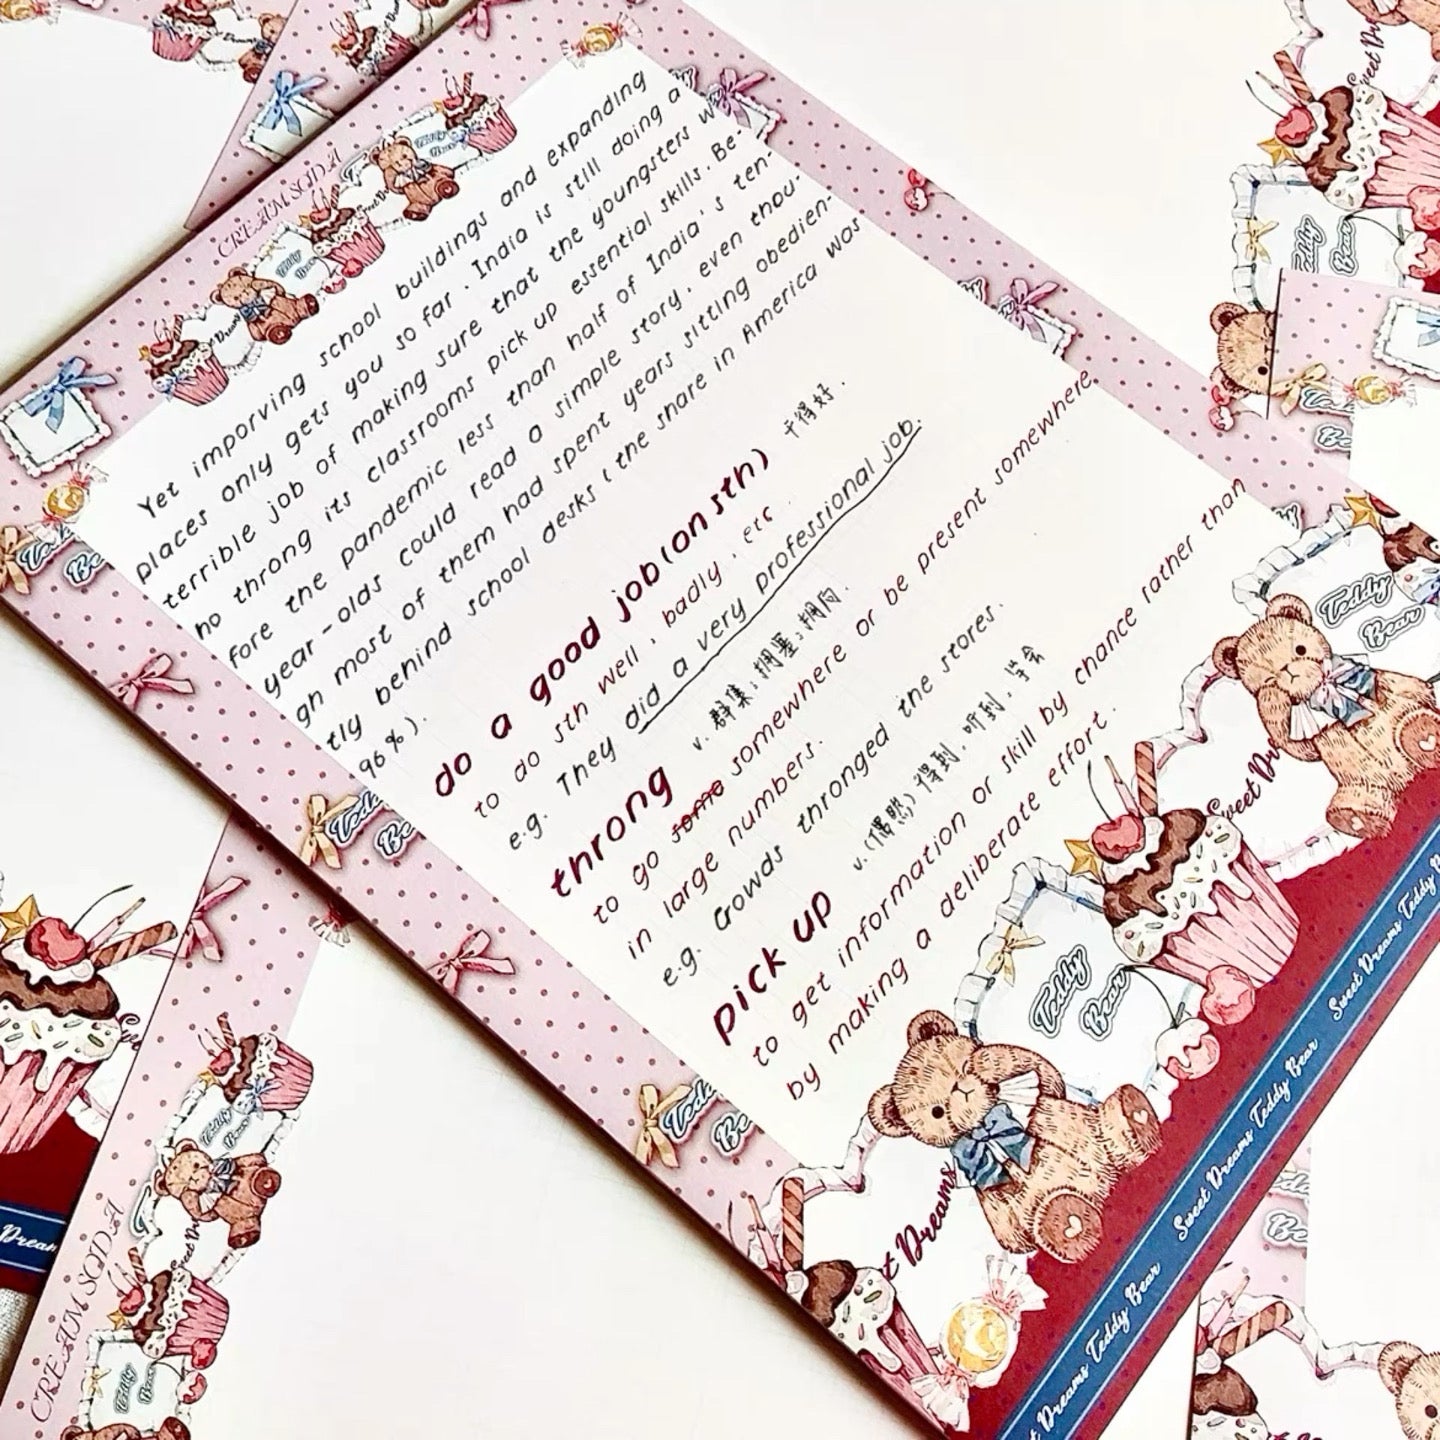 Yet imporving school buildings and expanding
places only gets you so far. India is still doing a
terrible job of making sure that the youngsters w
ho throng its classrooms pick up essential skills. Be-
fore the pandemic less than half of India's ten-
year-olds could read a simple story, even thou-
gh most of them had spent years sitting obedien-
tly behind school desks (the share in America was
96%).
do a good job (on sth) 干得好.
to do sth well, badly, etc.
e.g. They did a very professional job.
throng v. 群集; 拥塞; 拥向.
to go some somewhere or be present somewhere
in large numbers.
e.g. Crowds thronged the stores.
pick up v. (偶然) 得到, 听到, 学会
to get information or skill by chance rather than
by making a deliberate effort.
CREAM SODA
Teddy Bear
Sweet Dreams
Sweet Dreams Teddy Bear Sweet Dreams Teddy Bear Sweet Dreams Teddy Bear
CREAM SODA
Teddy Bear